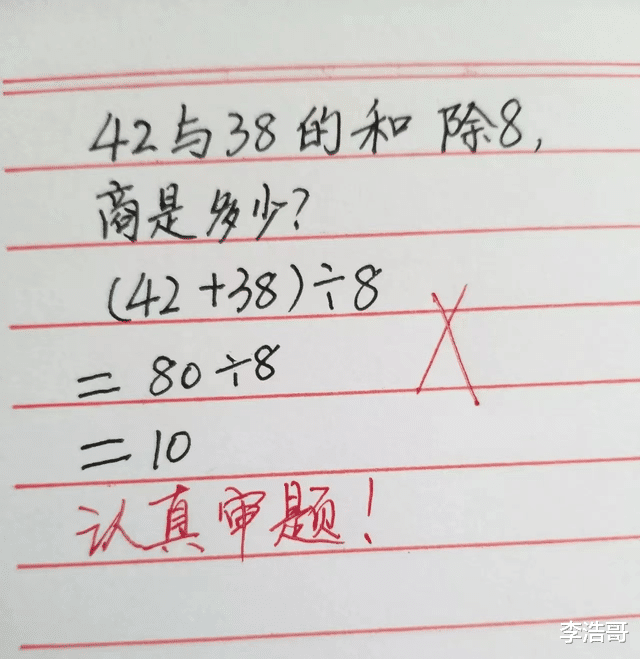 42与38的和 除8,
商是多少?
(42+38)÷8
=80÷8
=10
认真审题!
李浩哥